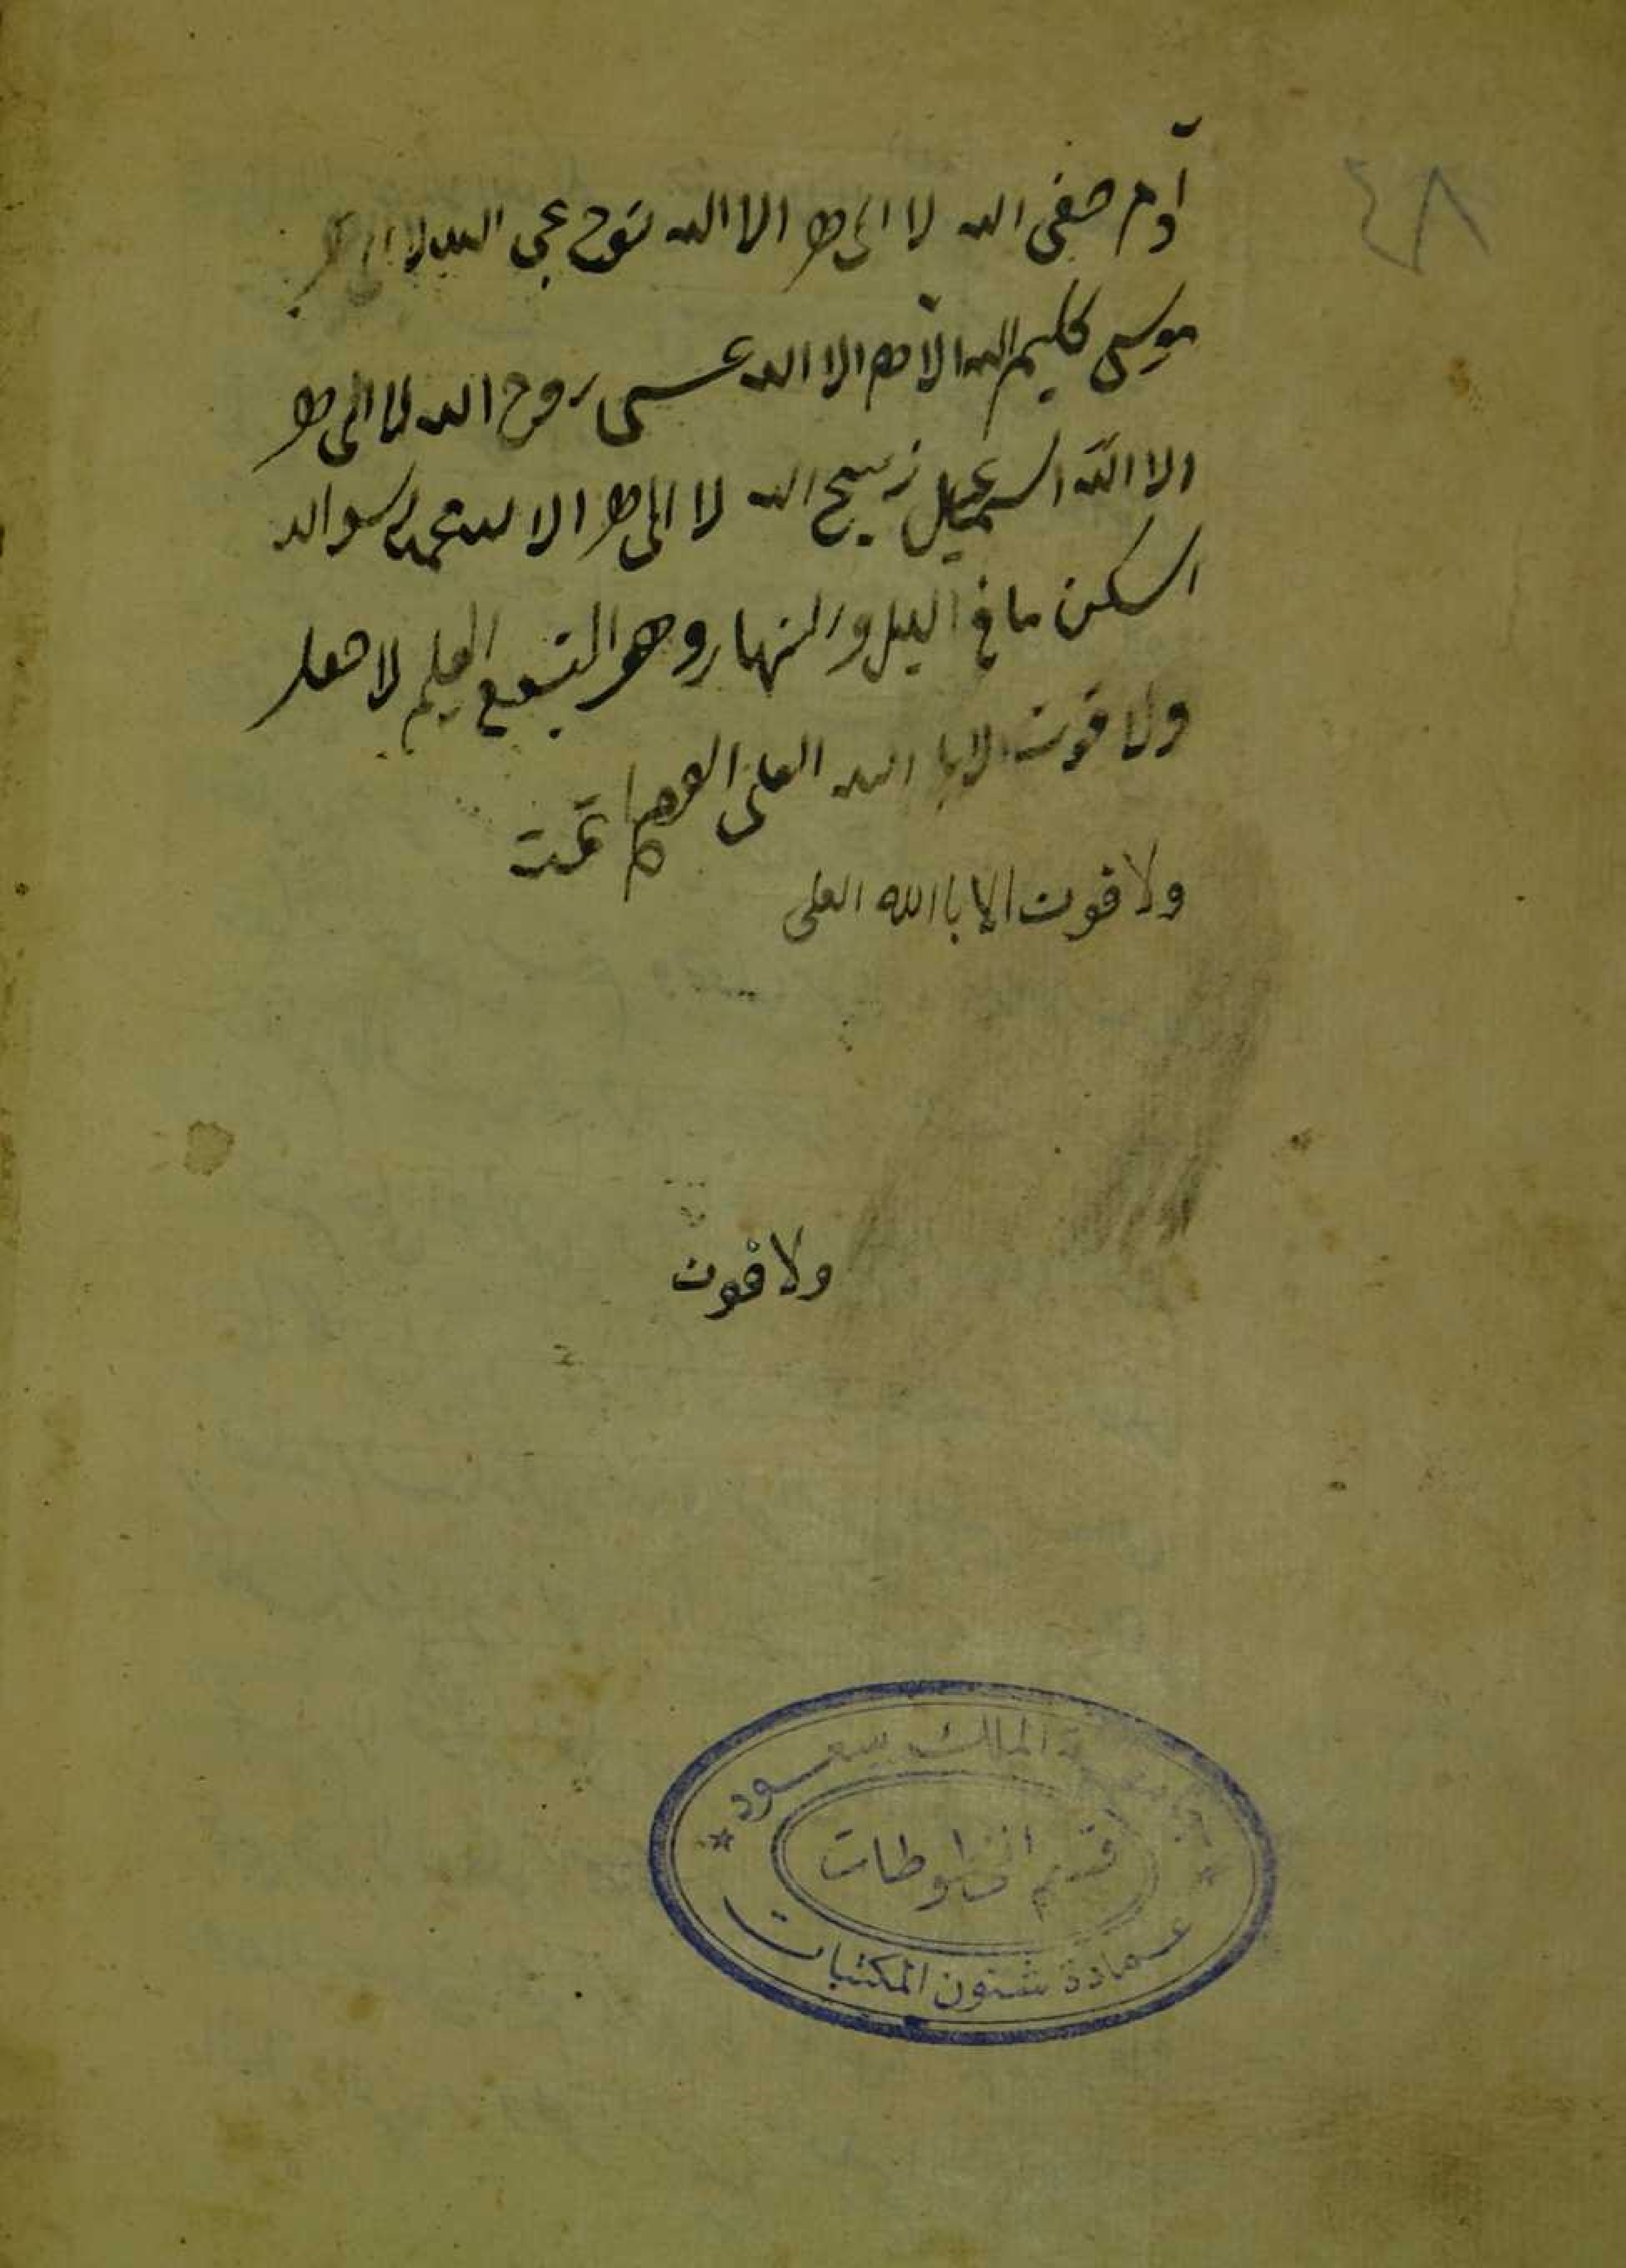 ٤٨
آدم صفى الله لا الى ه الا الله نوح نجى الله لا الى ه
موسى كليم الله الا ه الا الله عسى روح الله لا الى ه
الا الله اسمعيل زبيح الله لا الى ه الا الله محمد رسو الله
اسكن ما فى اليل و النهار وهو السميع العليم لا
ولا قوت الا با الله العلى تمت
ولا قوت الا با الله العلى
ولا قوت
جامعة الملك سعود
قسم المخطوطات
عمادة شئون المكتبات